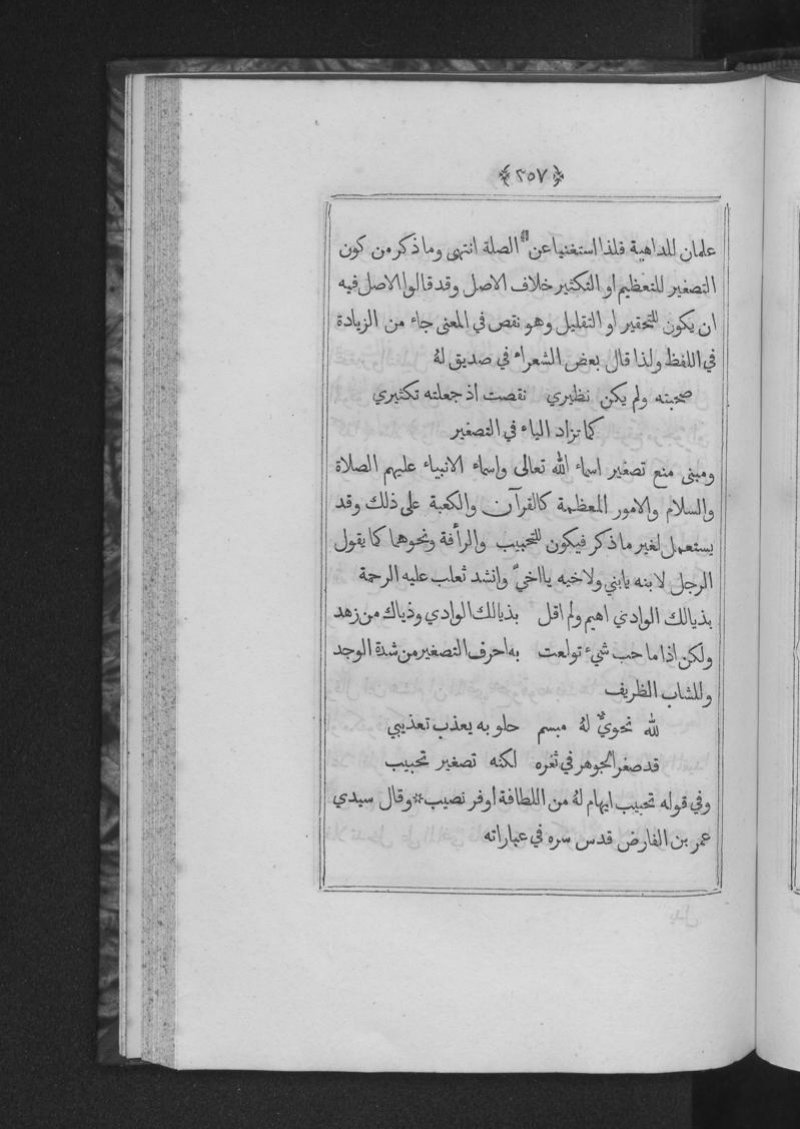 ﴿٢٥٧﴾
علمان للداهية فلذا استغنيا عن الصلة انتهى وما ذكر من كون
التصغير للتعظيم او التكثير خلاف الاصل وقد قالوا الاصل فيه
ان يكون للتحقير او التقليل وهو نقص في المعنى جاء من الزيادة
في اللفظ ولذا قال بعض الشعراء في صديق لهُ
صحبته ولم يكن نظيري نقصت اذ جعلته تكثيري
كما تزاد الياء في التصغير
ومبنى منع تصغير اسماء الله تعالى واسماء الانبياء عليهم الصلاة
والسلام والامور المعظمة كالقرآن والكعبة على ذلك وقد
يستعمل لغير ما ذكر فيكون للتحبيب والرأفة ونحوهما كما يقول
الرجل لابنه يابني ولاخيه يااخيّ وانشد ثعلب عليه الرحمة
بذيالك الوادي اهيم ولم اقل بذيالك الوادي وذياك من زهد
ولكن اذا ما حب شيء تولعت به احرف التصغير من شدة الوجد
وللشاب الظريف
لله نحويٌ لهُ مبسم حلو به يعذب تعذيبي
قد صغر الجوهر في ثغره لكنه تصغير تحبيب
وفي قوله تحبيب ايهام لهُ من اللطافة اوفر نصيب * وقال سيدي
عمر بن الفارض قدس سره في عباراته